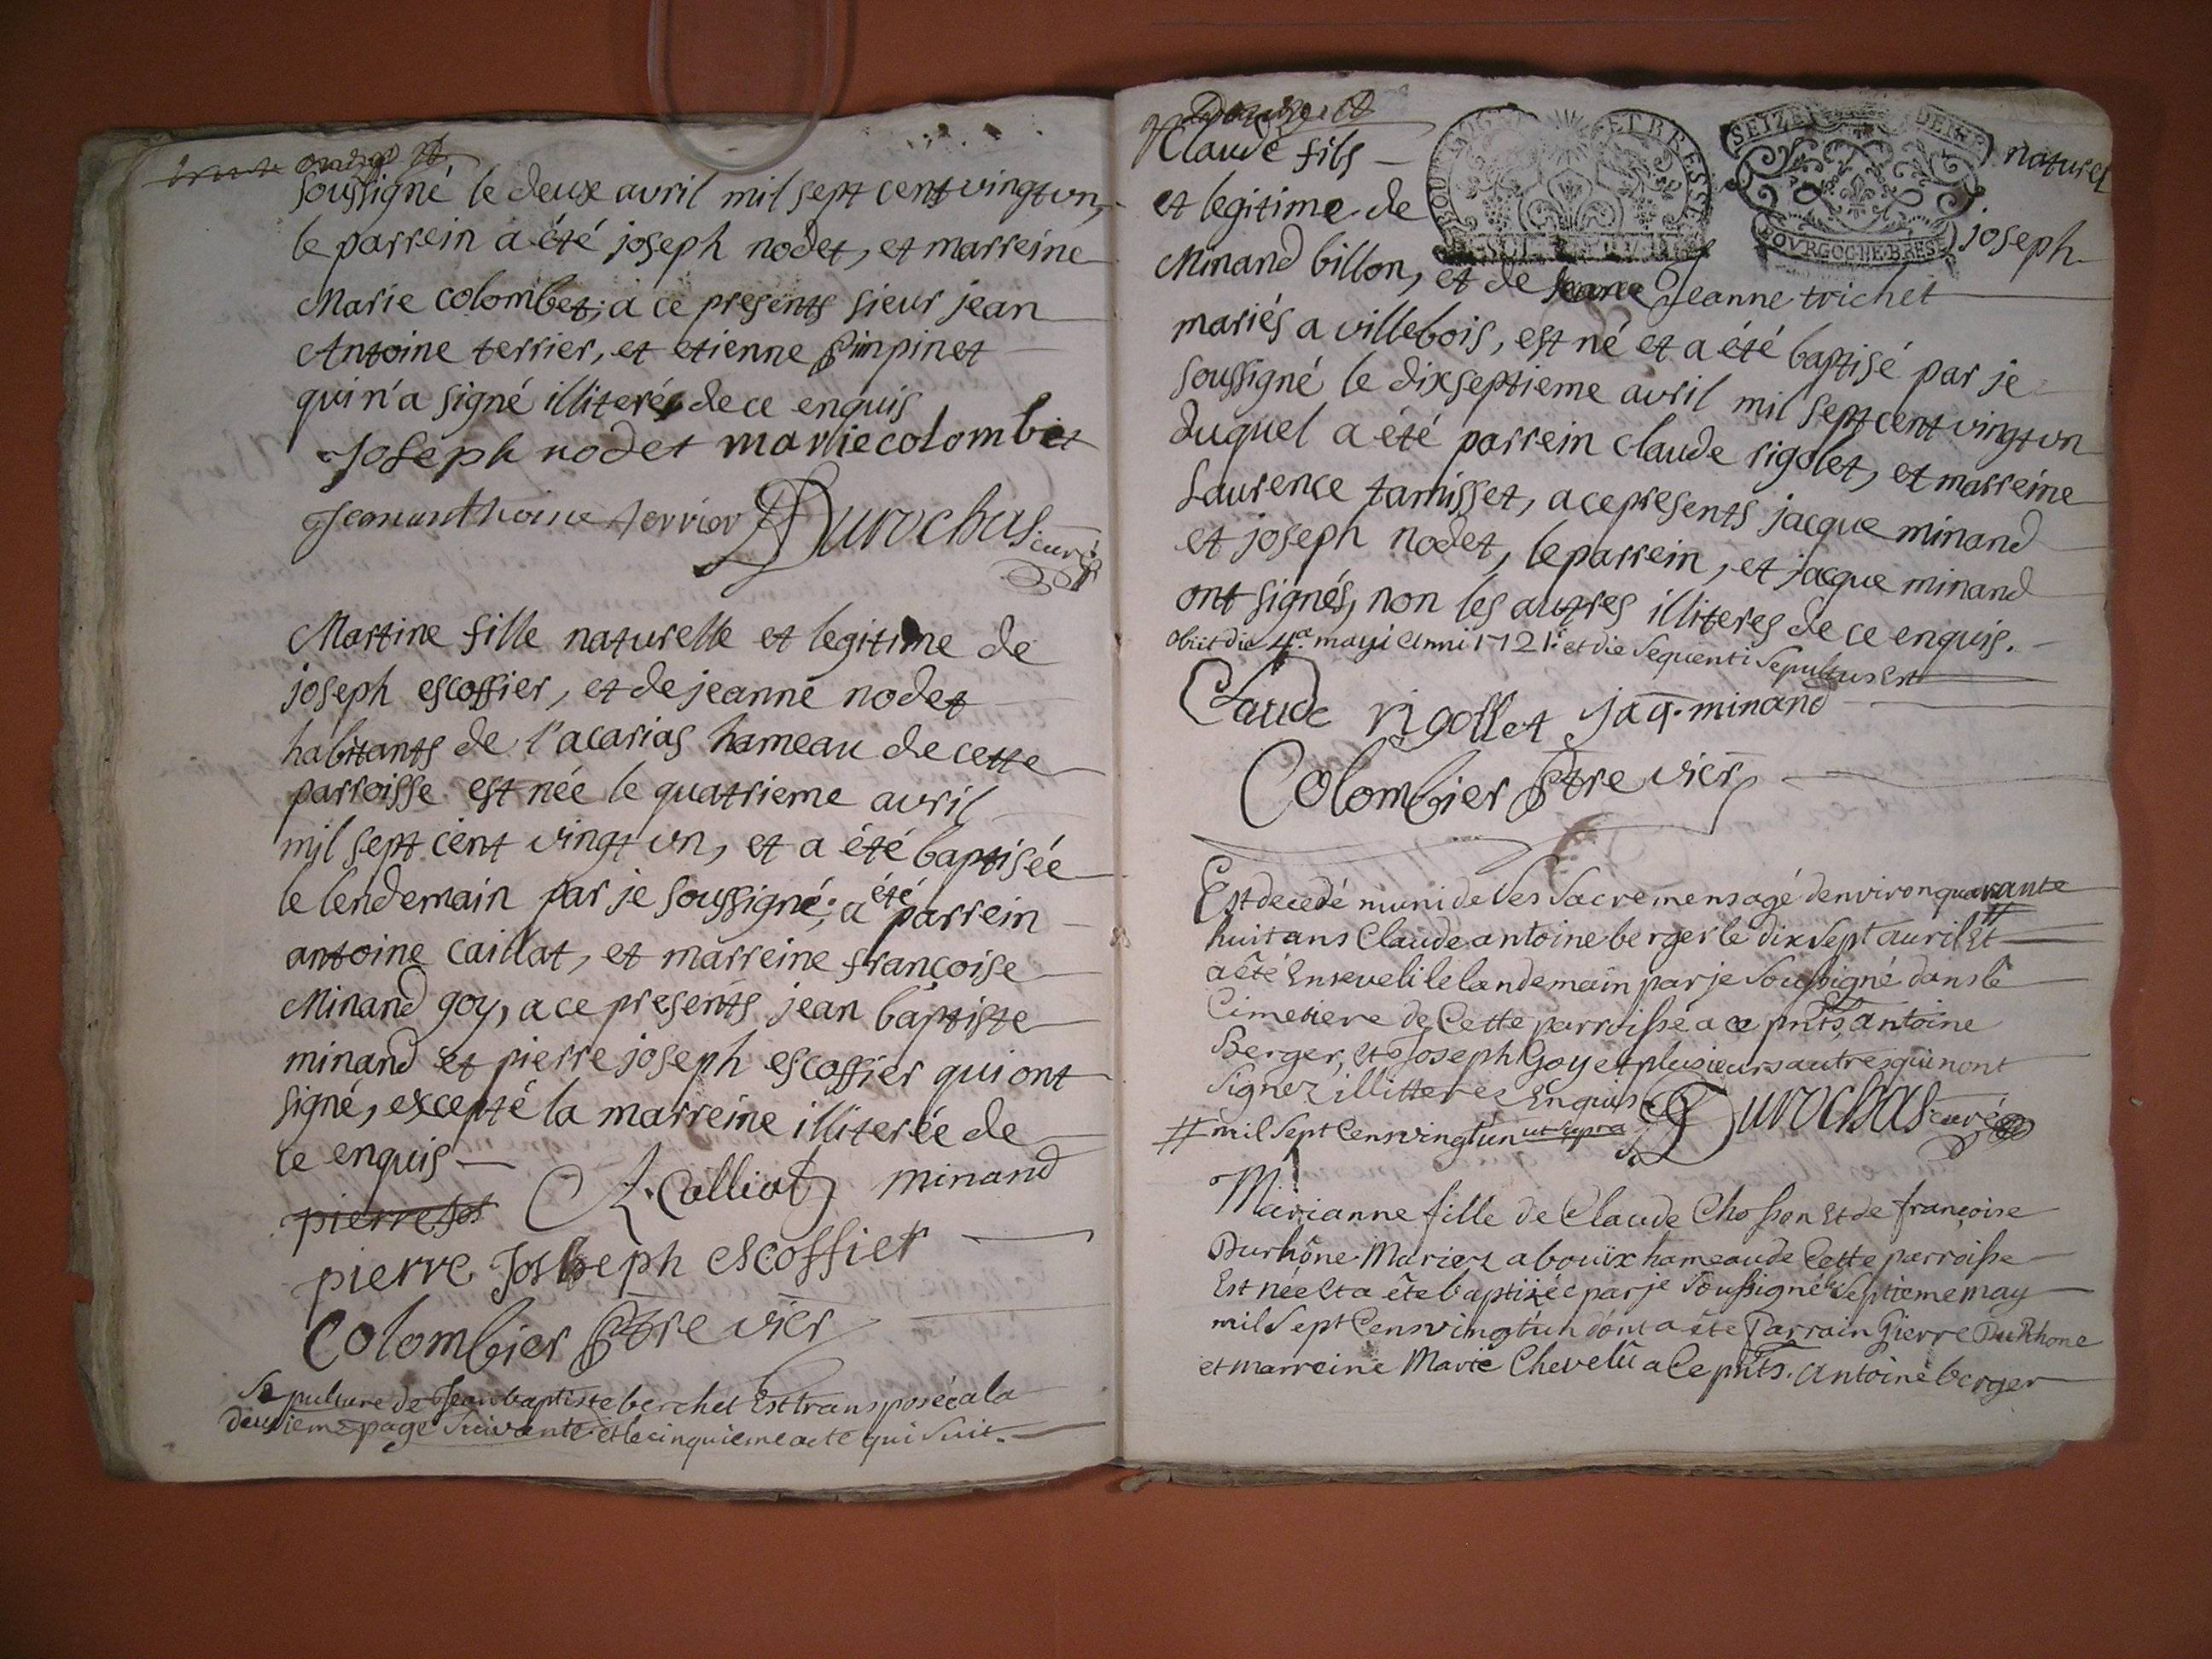 soussigné le deux avril mil sept cent vingt vn,
le parrein a été joseph nodet, et marreine
Marie colombet; a ce presents sieur jean
Antoine terrier, et etienne pinpinet
qui n'a signé illiteré de ce enquis
joseph nodet marie colombet
jeananthoine terrier Durochas curé
Martine fille naturelle et legitime de
joseph escoffier, et de jeanne nodet
habitants de l'acarias hameau de cette
parroisse est née le quatrieme avril
mil sept cent vingt vn, et a été baptisée
le lendemain par je soussigné; a été parrein
antoine caillat, et marreine françoise
Minand goy, a ce presents jean baptiste
minand et pierre joseph escoffier qui ont
signé, excepté la marreine illiterée de
ce enquis
pierre jos Calliat minand
pierre Joseph escoffier
Colombier ptre vier
Sepulture de Jean baptiste berchet Est transposée a la
deuxieme page suivante et le cinquieme acte qui suit.
Claude fils naturel
et legitime de joseph
Minand billon, et de Jeanne trichet
mariés a villebois, est né et a été baptisé par je
soussigné le dixseptieme avril mil sept cent vingt vn
duquel a été parrein claude rigolet, et marreine
Laurence tamisset, a ce presents jacque minand
et joseph nodet, le parrein, et jacque minand
ont signés, non les autres illiteres de ce enquis.
obiit die 4a. mayi anni 1721: et die sequenti sepultus est
Claude rigollet jaq. minand
Colombier ptre vier
Est decedé muni de ses sacremens agé denviron quarante
huit ans Claude antoine berger le dix sept auril # Et
a êté Enseveli le landemain par je soussigné dans le
Cimetiere de Cette parroisse a ce pnts, antoine
Berger, et Joseph Goy et plusieurs autres qui nont
signez illitteres Enquis Durochas curé
# mil sept Cens vingt un ut supra
Marianne fille de Claude Chosson Et de françoise
Durhône Mariez a bouïx hameau de Cette parroisse
Est née Et a ête baptizée par je soussigné le septieme may
mil sept Cens vingt un dont a ête Parrain Pierre DuRhone
et marreine Marie Chevelu a Ce pnts. antoine berger
SEIZE DEN
BOVRGOGNE BRES
BOURGOGNE ET BRESSE